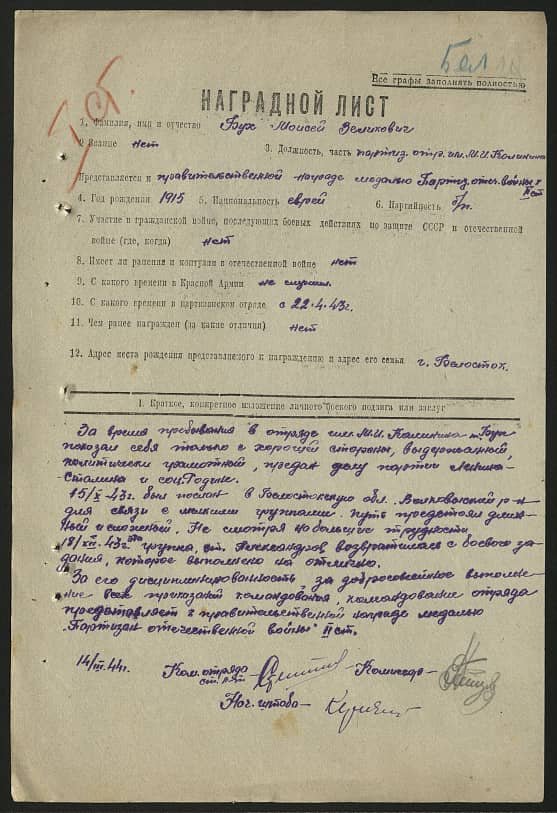 Бел
Все графы заполнять полностью
НАГРАДНОЙ ЛИСТ
1. Фамилия, имя и отчество Бух Моисей Зеликович
2. Звание нет
3. Должность, часть партиз. отр. им. М.И. Калинина
Представляется к правительственной награде медалью Партиз. отеч. войны II ст
4. Год рождения 1915 5. Национальность еврей 6. Партийность б/п.
7. Участие в гражданской войне, последующих боевых действиях по защите СССР и отечественной
войне (где, когда) нет
8. Имеет ли ранения и контузии в отечественной войне нет
9. С какого времени в Красной Армии не служил.
10. С какого времени в партизанском отряде с 22.4.43г.
11. Чем ранее награжден (за какие отличия) нет
12. Адрес места рождения представляемого к награждению и адрес его семьи г. Белосток.
1. Краткое, конкретное изложение личного боевого подвига или заслуг
За время пребывания в отряде им. М.И. Калинина т. Бух
показал себя только с хорошей стороны, выдержанный,
политически грамотный, предан делу партии Ленина-
Сталина и соц. Родине.
15/X-43г. был послан в Белостокскую обл. Волковысский р-н
для связи с мелкими группами. путь предстоял длин-
ный и сложный. Не смотря на большие трудности
18/XII-43г. группа, ст. Александров возвратилась с боевого за-
дания, которое выполнено на отлично.
За его дисциплинированность, за добросовестное выполне-
ние всех приказаний командования, командование отряда
представляет к правительственной награде медалью
"Партизан отечественной войны" II ст.
14/III.44г.
Ком. отряда
ст. л-т
Комиссар-
Нач. штаба-